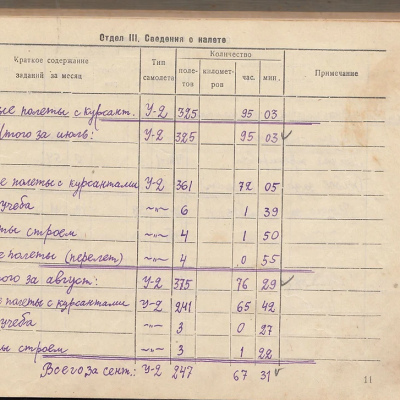 Отдел III. Сведения о налете
Краткое содержание заданий за месяц Тип самолета Количество Примечание
полетов километров час. мин.
ые полеты с курсант. У-2 325 95 03
Итого за июль: У-2 325 95 03
е полеты с курсантами У-2 361 72 05
учеба -"- 6 1 39
ты строем -"- 4 1 50
е полеты (перелет) -"- 4 0 55
ого за август: У-2 375 76 29
е полеты с курсантами У-2 241 65 42
учеба -"- 3 0 27
ы строем -"- 3 1 22
Всего за сент.: У-2 247 67 31
11